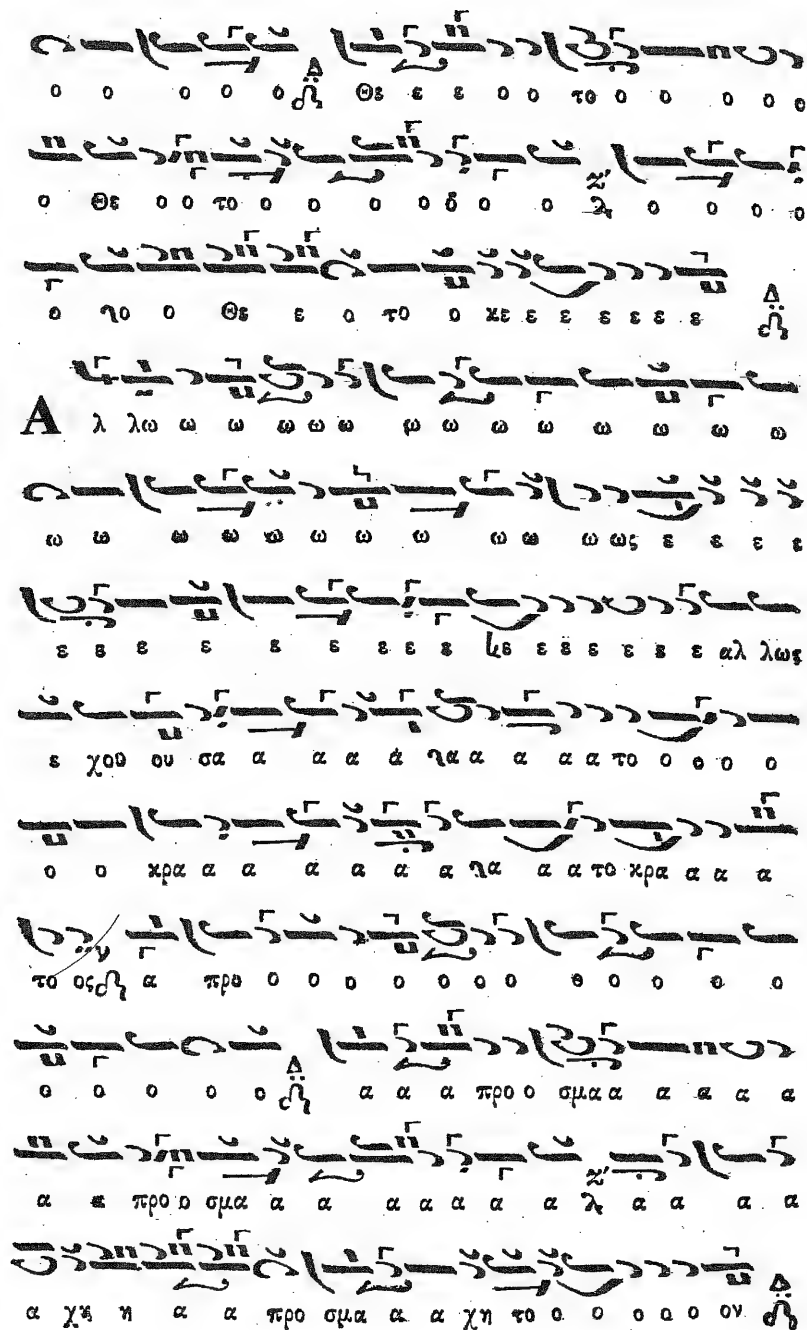 ο ο ο ο ο Δ Θε ε ε ο ο το ο ο ο ο ο
ο Θε ο ο το ο ο ο ο δ ο ο ζ' ο ο ο ο
ο λο ο Θε ε ο το ο κε ε ε ε ε ε ε Δ
Α λ λω ω ω ω ω ω ω ω ω ω ω ω ω ω
ω ω ω ω ω ω ω ω ω ω ω ως ε ε ε ε
ε ε ε ε ε ε ε ε ε ε ε ε ε ε ε αλ λως
ε χου ου σα α α α α α α α α το ο ο ο ο
ο ο κρα α α α α α α α α το κρα α α α
το ος α προ ο ο ο ο ο ο ο ο ο ο ο ο
ο ο ο ο ο Δ α α α προ ο σμα α α α α α
α α προ ο σμα α α α α α α α ζ' α α α α
α χη η α α προ σμα α α χη το ο ο ο ο ο ον Δ